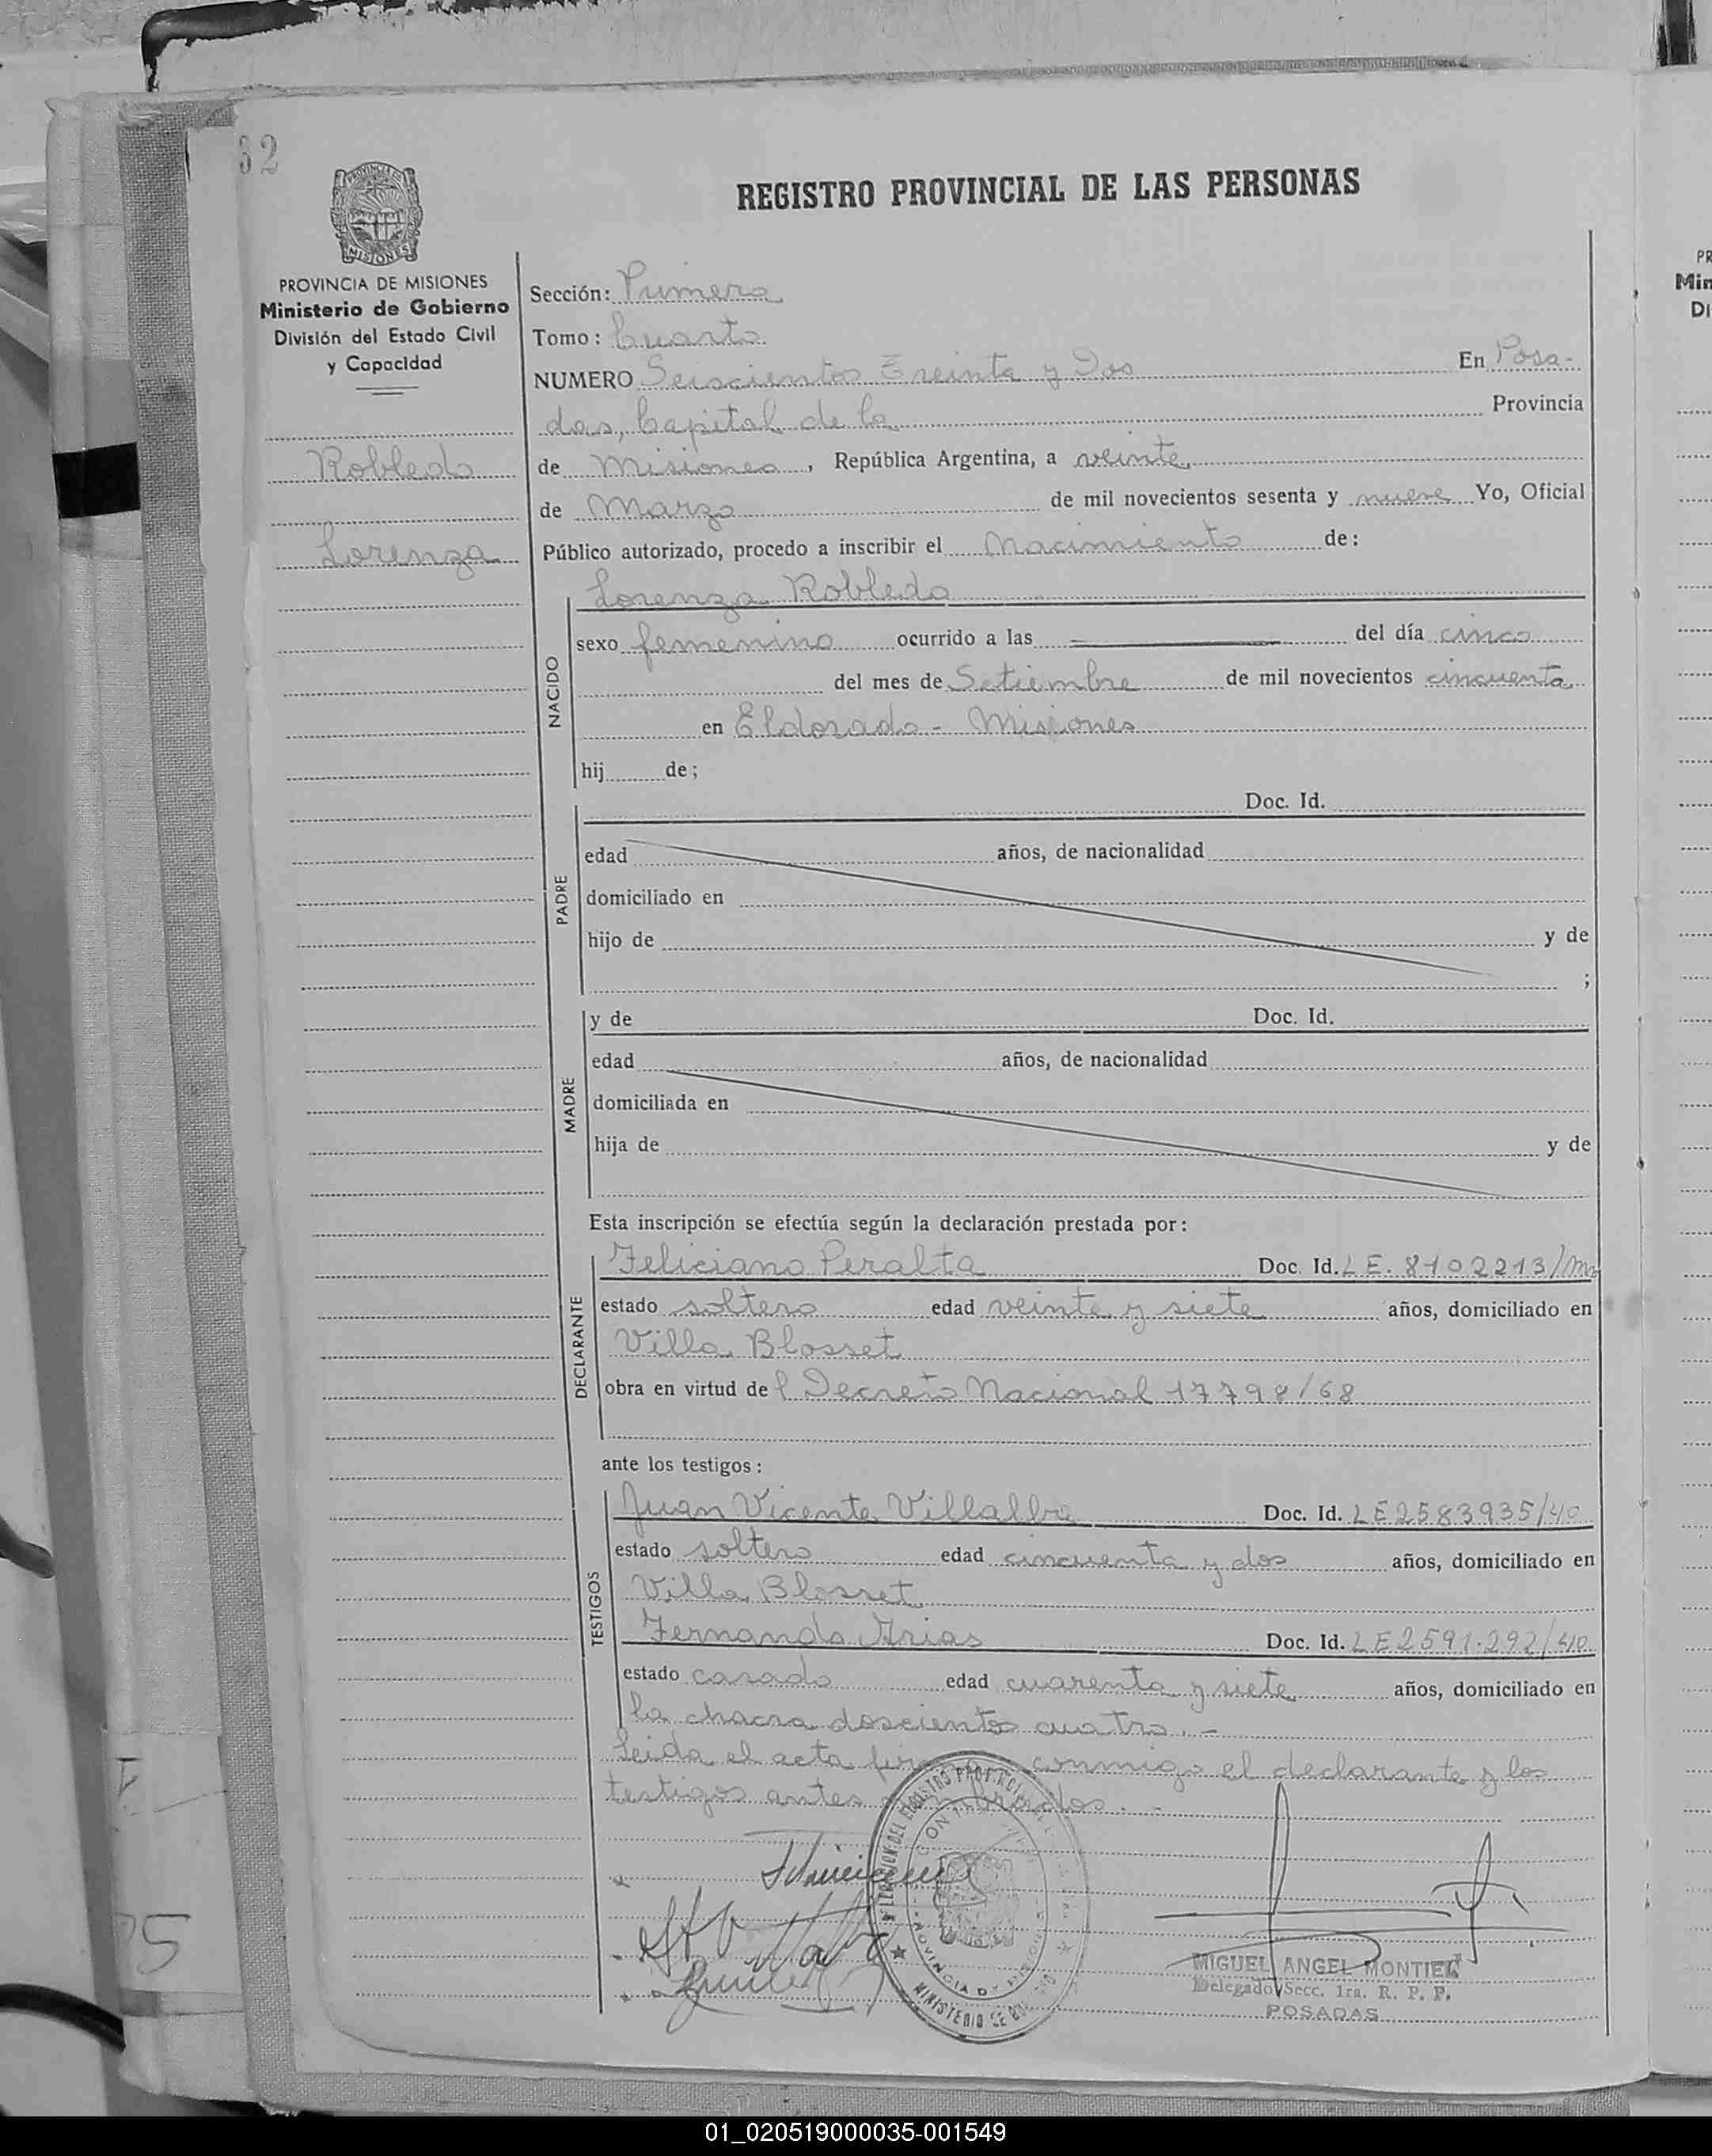 32
REGISTRO PROVINCIAL DE LAS PERSONAS
PROVINCIA DE MISIONES
MISIONES
PROVINCIA DE MISIONES
Ministerio de Gobierno
División del Estado Civil
y Capacidad
Robledo
Lorenza
Sección: Primera
Tomo: Cuarto
NUMERO Seiscientos Treinta y Dos En Posa-
das, Capital de la Provincia
de Misiones, República Argentina, a veinte
de Marzo de mil novecientos sesenta y nueve Yo, Oficial
Público autorizado, procedo a inscribir el Nacimiento de:
NACIDO
Lorenza Robledo
sexo femenino ocurrido a las del día cinco
del mes de Setiembre de mil novecientos cincuenta
en Eldorado - Misiones
hij de;
PADRE
Doc. Id.
edad años, de nacionalidad
domiciliado en
hijo de y de
;
MADRE
y de Doc. Id.
edad años, de nacionalidad
domiciliada en
hija de y de
Esta inscripción se efectúa según la declaración prestada por:
DECLARANTE
Feliciano Peralta Doc. Id. LE. 8102213/Ms
estado soltero edad veinte y siete años, domiciliado en
Villa Blosset
obra en virtud del Decreto Nacional 17798/68
ante los testigos:
TESTIGOS
Juan Vicente Villalba Doc. Id. LE2583935/40
estado soltero edad cincuenta y dos años, domiciliado en
Villa Blosset
Fernando Arias Doc. Id. LE2591.292/40
estado casado edad cuarenta y siete años, domiciliado en
la chacra doscientos cuatro. -
Leida el acta conmigo el declarante y los
testigos antes nombrados. -
MINISTERIO DE GOBIERNO
PROVINCIA DE MISIONES
MIGUEL ANGEL MONTIEL
Delegado Secc. 1ra. R. P. P.
POSADAS
PR
Min
Di
25
01_020519000035-001549